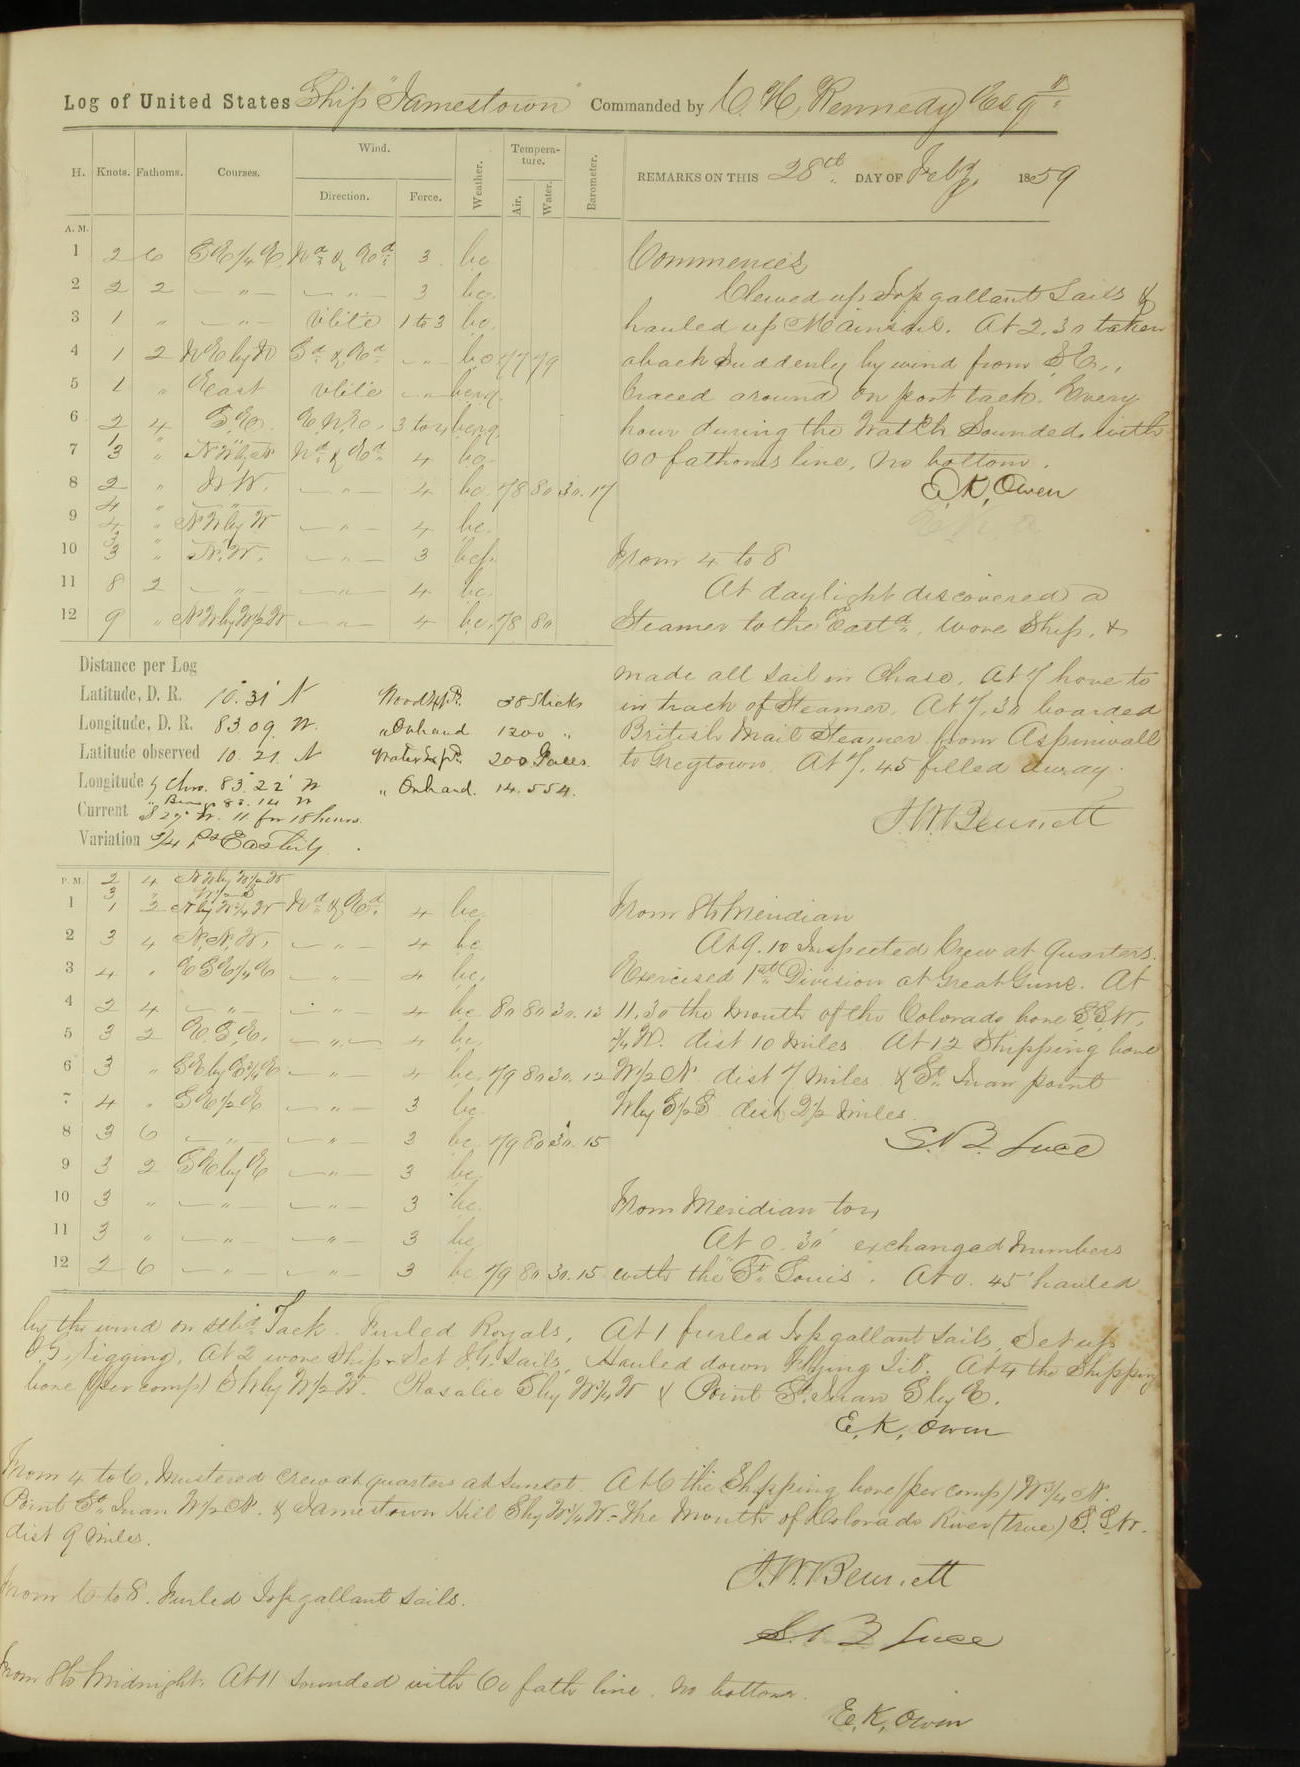 Log of United States Ship "Jamestown" Commanded by C. H. Kennedy Esqr.
H. Knots. Fathoms. Courses. Wind. Direction. Force. Weather. Temperature. Air. Water. Barometer.
REMARKS ON THIS 28th DAY OF Feby. 1859
A. M.
1 2 6 SE 1/4 E Nd & Ed 3 bc
2 2 2 — " — — " — 3 bc.
3 1 " — " — Vble 1 to 3 bc.
4 1 2 NE by N Sd & Ed — " — bc 77 79
5 1 " East Vble — " —
6 2 4 S.E. E.N.E. 3 to 4
7 1 3 " Nd & Ed 4 bc.
8 2 4 " N.W. — " — 4 bc. 78 80 30.17
9 4 3 " NW by W — " — 4 bc.
10 3 " N.W. — " — 3
11 8 2 — " — — " — 4 bc.
12 9 " NW by W 1/2 W — " — 4 bc. 78 80
Commences
Clewed up Top gallant Sails &
hauled up Mainsail. At 2.30 taken
aback Suddenly by wind from S.E.,
braced around on port tack. Every
hour during the Watch Sounded with
60 fathoms line, No bottom.
E. K. Owen
From 4 to 8
At daylight discovered a
Steamer to the Eastd., Wore Ship, &
made all sail in Chase. At 7 hove to
in track of Steamer. At 7.30 boarded
British Mail Steamer from Aspinwall
to Greytown. At 7.45 filled away.
J. W. Bennett
Distance per Log
Latitude, D. R. 10° 31' N Wood Expd. 38 Sticks
Longitude, D. R. 83 09 W. " Onhand 1200 "
Latitude observed 10. 21 N Water Expd. 200 Galls.
Longitude by Chro. 83° 22' W " Onhand. 14.554.
Current S 27° W. 11 for 18 hours.
Variation 3/4 Pt Easterly.
P. M.
2 4 NW by W 1/2 W
1 1 2 N by W 3/4 W Nd & Ed. 4 bc.
2 3 4 N.N.W. — " — 4 bc
3 4 " ESE 1/4 E — " 4 bc.
4 2 4 — " — — " — 4 bc 80 80 30.13
5 3 2 E.S.E. — " — 4 bc.
6 3 " SE by E 3/4 E — " — 4 bc. 79 80 30.12
7 4 " SE 1/2 E — " — 3 bc.
8 3 6 — " — — " — 3 bc. 79 80 30.15
9 3 2 SE by E — " — 3 bc.
10 3 " — " — — " — 3 bc.
11 3 " — " — — " — 3 bc
12 2 6 — " — — " — 3 bc 79 80 30.15
From 8 to Meridian
At 9.10 Inspected Crew at Quarters.
Exercised 1st Division at Great Guns. At
11.30 the Mouth of the Colorado bore S.S.W.
3/4 W. dist 10 miles. At 12 Shipping bore
W 1/2 N dist 7 miles & St. Juan point
W by S 1/2 S dist 2 1/2 miles.
S. B. Luce
From Meridian to 4
At 0.30 exchanged Numbers
with the "St. Louis". At 0.45 hauled
by the wind on stbd Tack. Furled Royals. At 1 furled Top gallant Sails, Set up
Rigging. At 2 wore Ship & Set J.G. Sails, Hauled down Flying Jib. At 4 the Shipping
bore (per comp) SW by W 1/2 W. Rosalie S by W 3/4 W & Point St. Juan S by E.
E. K. Owen
From 4 to 6. Mustered Crew at quarters at Sunset. At 6 the Shipping bore (per comp) W 3/4 N.
Point St. Juan W 1/2 N. & Jamestown Hill S by W 3/4 W. The Mouth of Colorado River (true) S.S.W.
dist 9 miles.
J. W. Bennett
From 6 to 8. Furled Top gallant Sails.
S. B. Luce
From 8 to Midnight. At 11 Sounded with 60 fath line. No bottom.
E. K. Owen